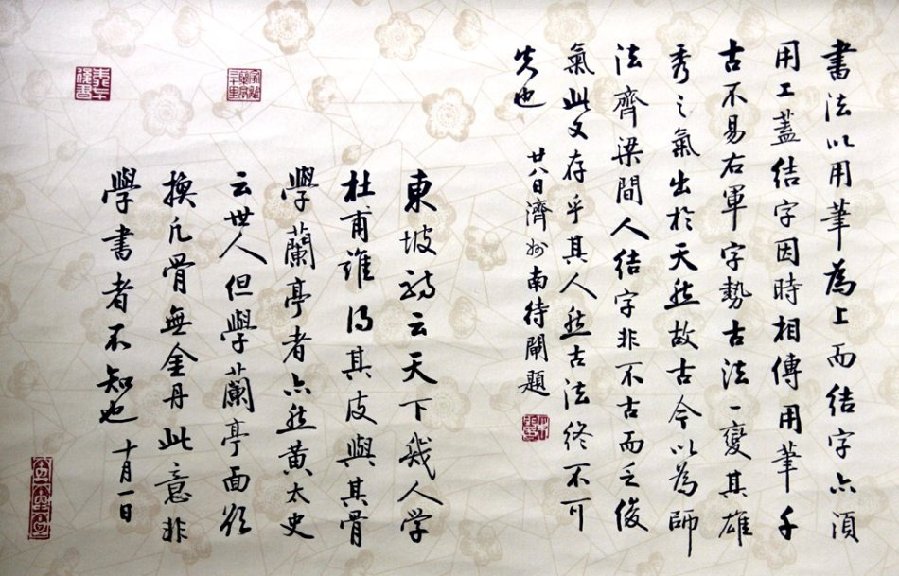 書法以用筆為上而結字亦須
用工蓋結字因時相傳用筆千
古不易右軍字勢古法一變其雄
秀之氣出於天然故古今以為師
法齊梁間人結字非不古而乏俊
氣此又存乎其人然古法終不可
失也
廿八日濟州南待閘題
東坡詩云天下幾人學
杜甫誰得其皮與其骨
學蘭亭者亦然黃太史
云世人但學蘭亭面欲
換凡骨無金丹此意非
學書者不知也
十月一日